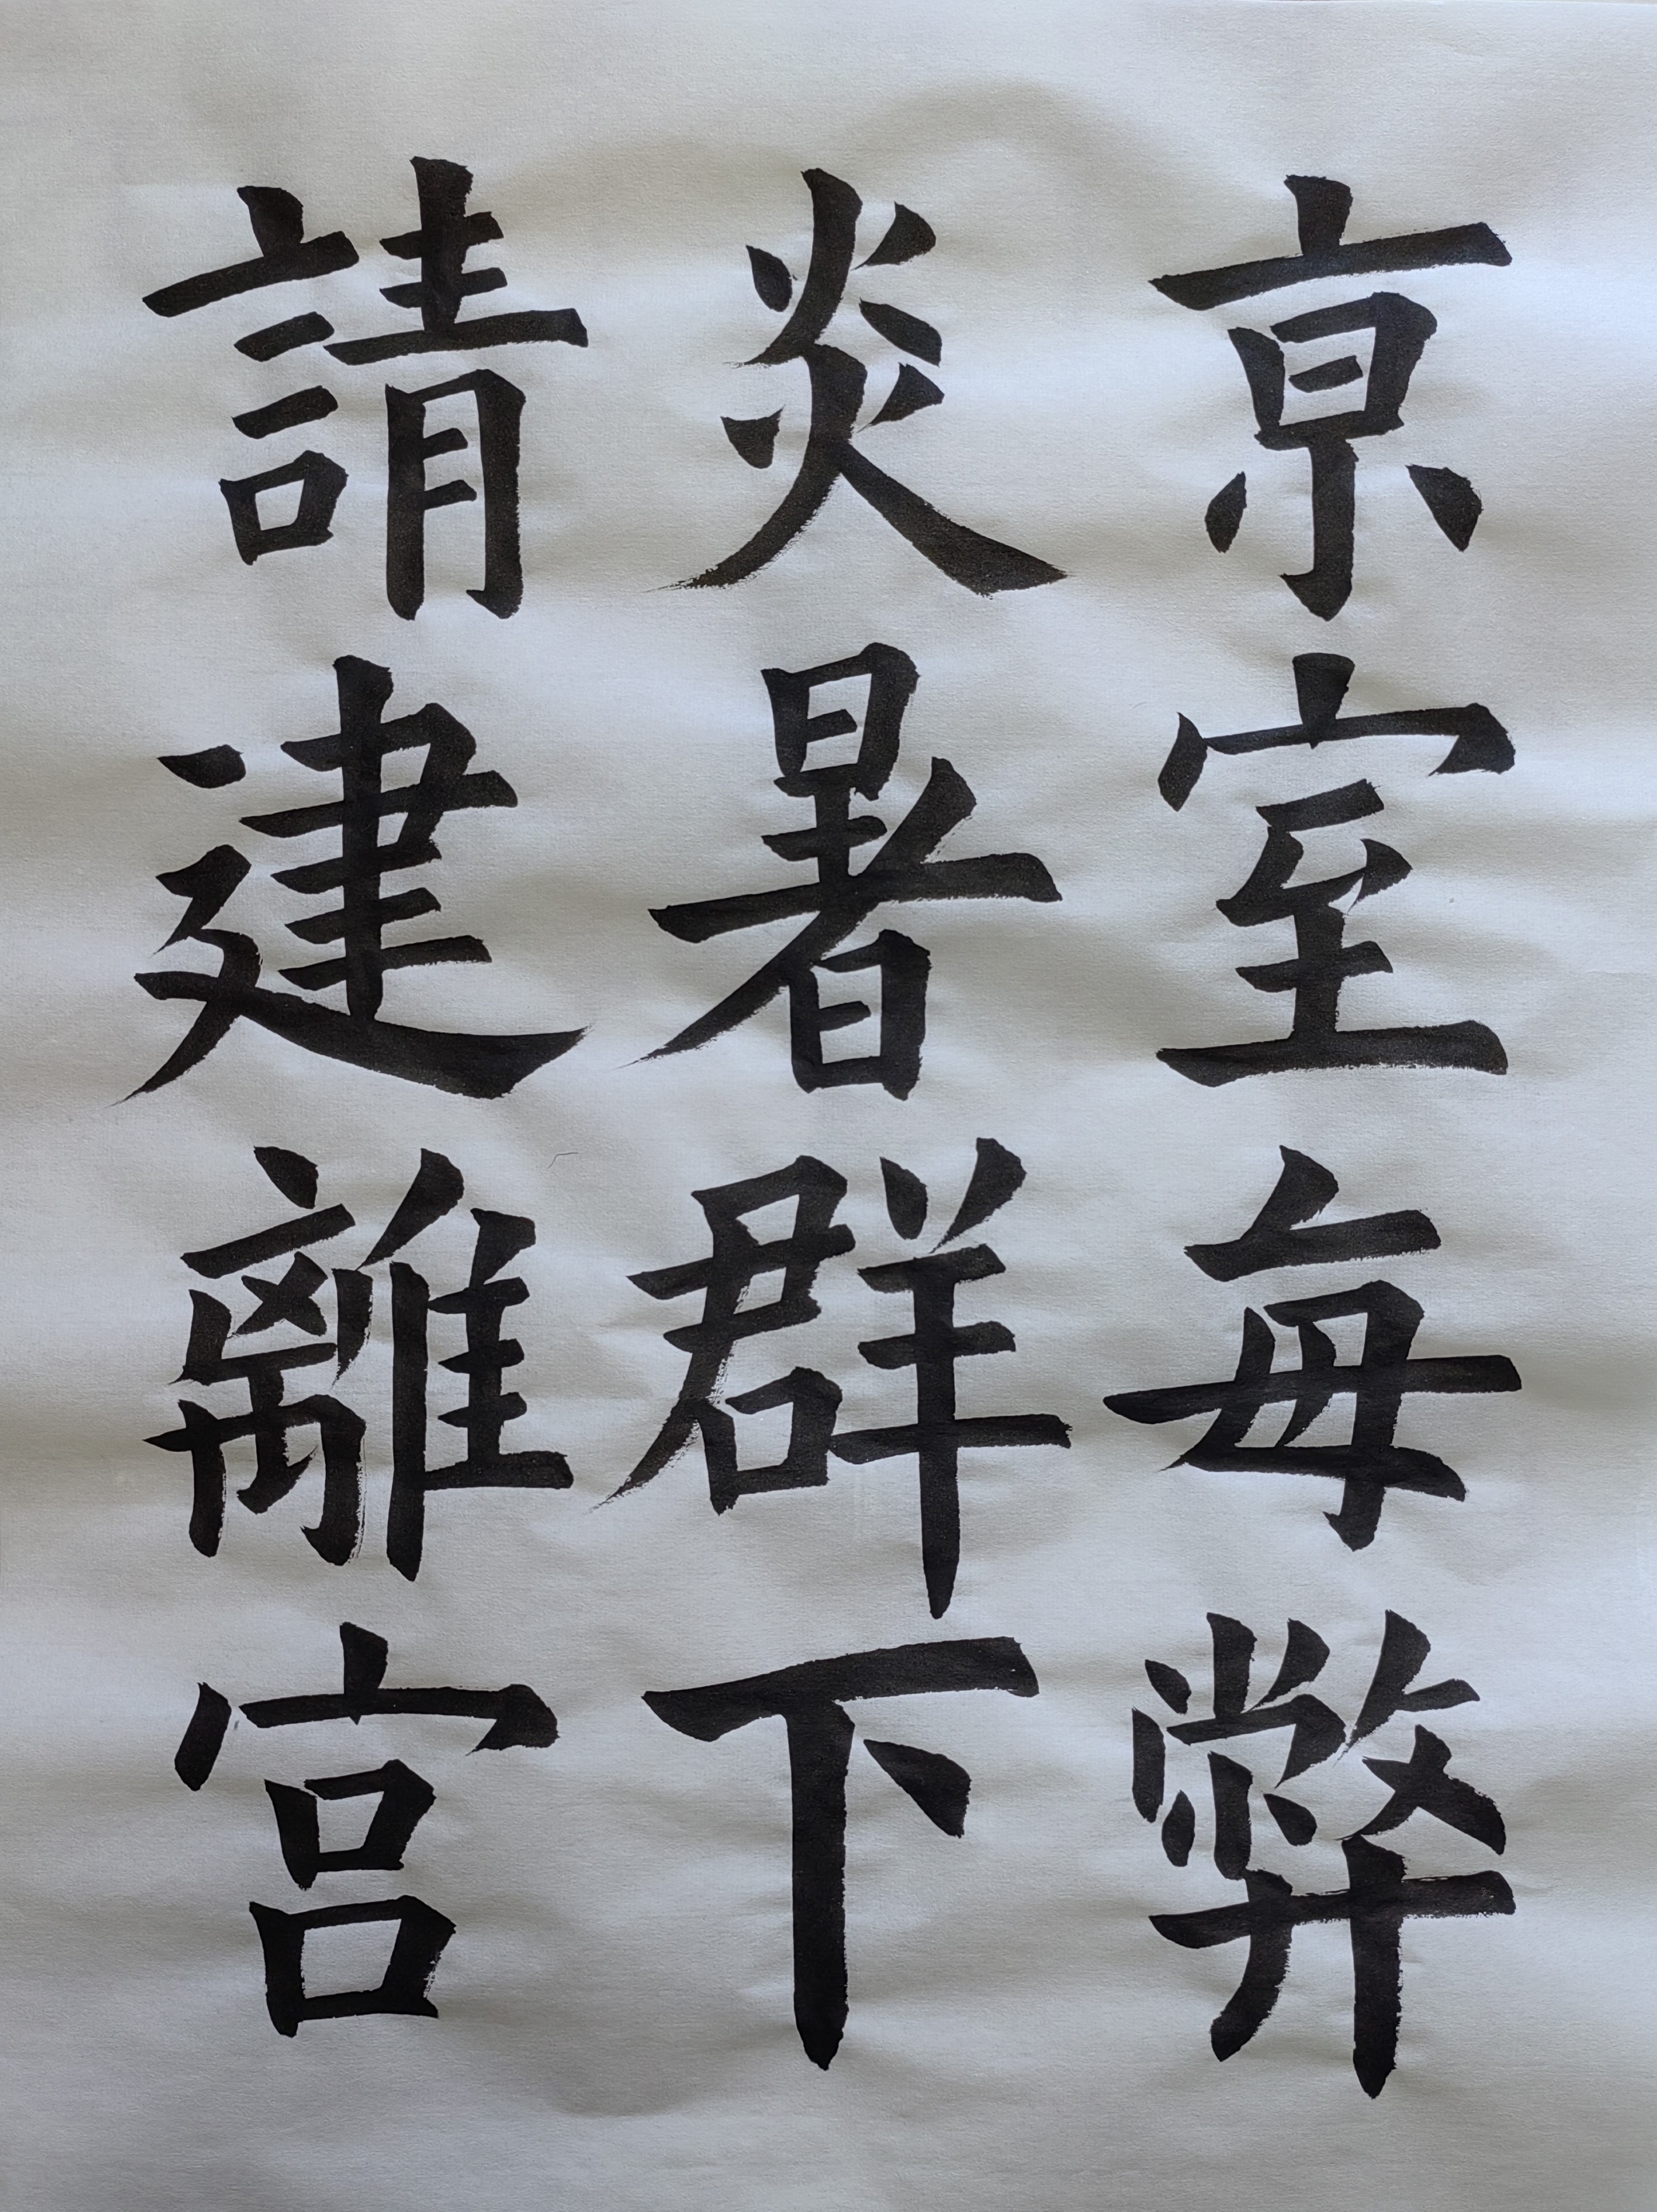 京室每弊
炎暑群下
請建離宮